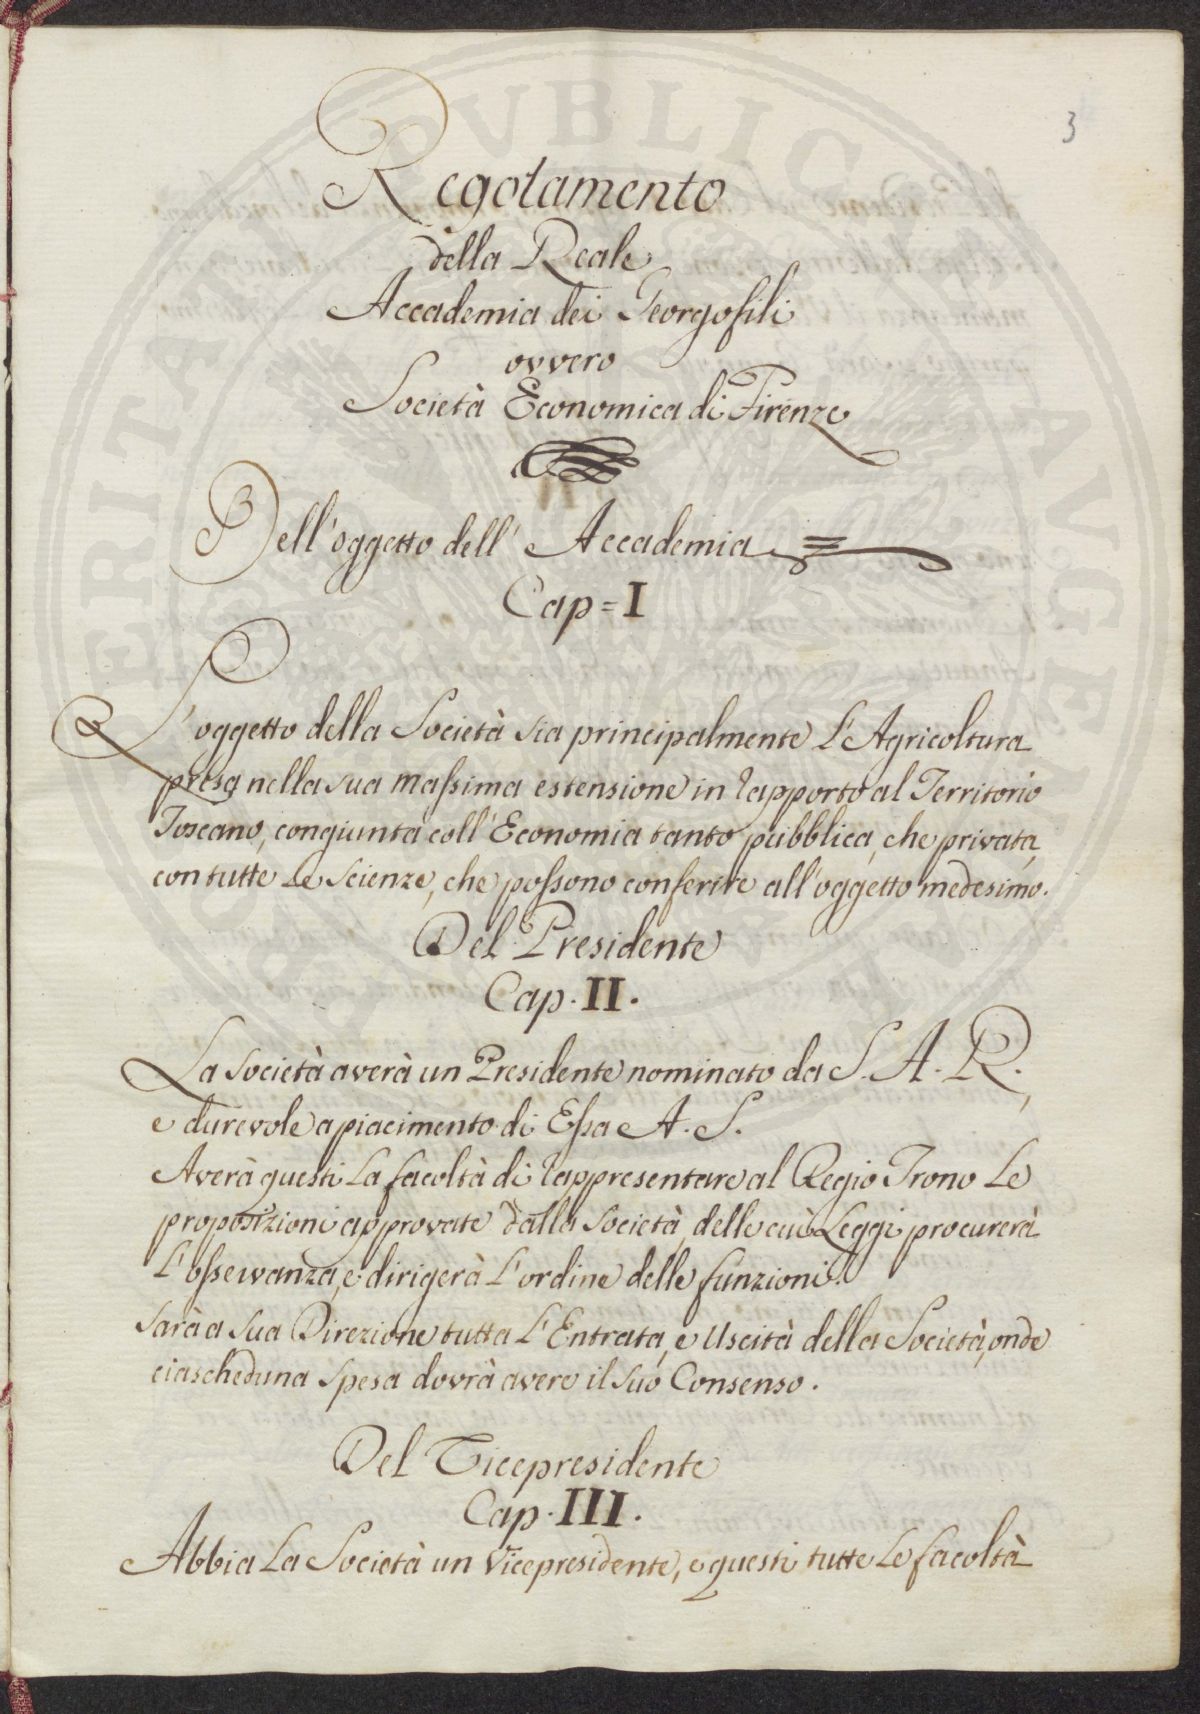 3
Regolamento
della Reale
Accademia dei Georgofili
ovvero
Società Economica di Firenze
Dell'oggetto dell' Accademia =
Cap = I
L'oggetto della Società sia principalmente l'Agricoltura
presa nella sua massima estensione in rapporto al Territorio
Toscano, congiunta coll'Economia tanto pubblica, che privata,
con tutte le Scienze, che possono conferire all'oggetto medesimo.
Del Presidente
Cap. II.
La Società averà un Presidente nominato da S. A. R.,
e durevole a piacimento di Essa A. S.
Averà questi la facoltà di rappresentare al Regio Trono le
proposizioni approvate dalla Società, delle cui Leggi procurerà
l'osservanza, e dirigerà l'ordine delle funzioni.
Sarà a sua Direzione tutta l'Entrata, e Uscita della Società, onde
ciascheduna spesa dovrà avere il suo Consenso.
Del Vicepresidente
Cap. III.
Abbia la Società un Vicepresidente, e questi tutte le facoltà